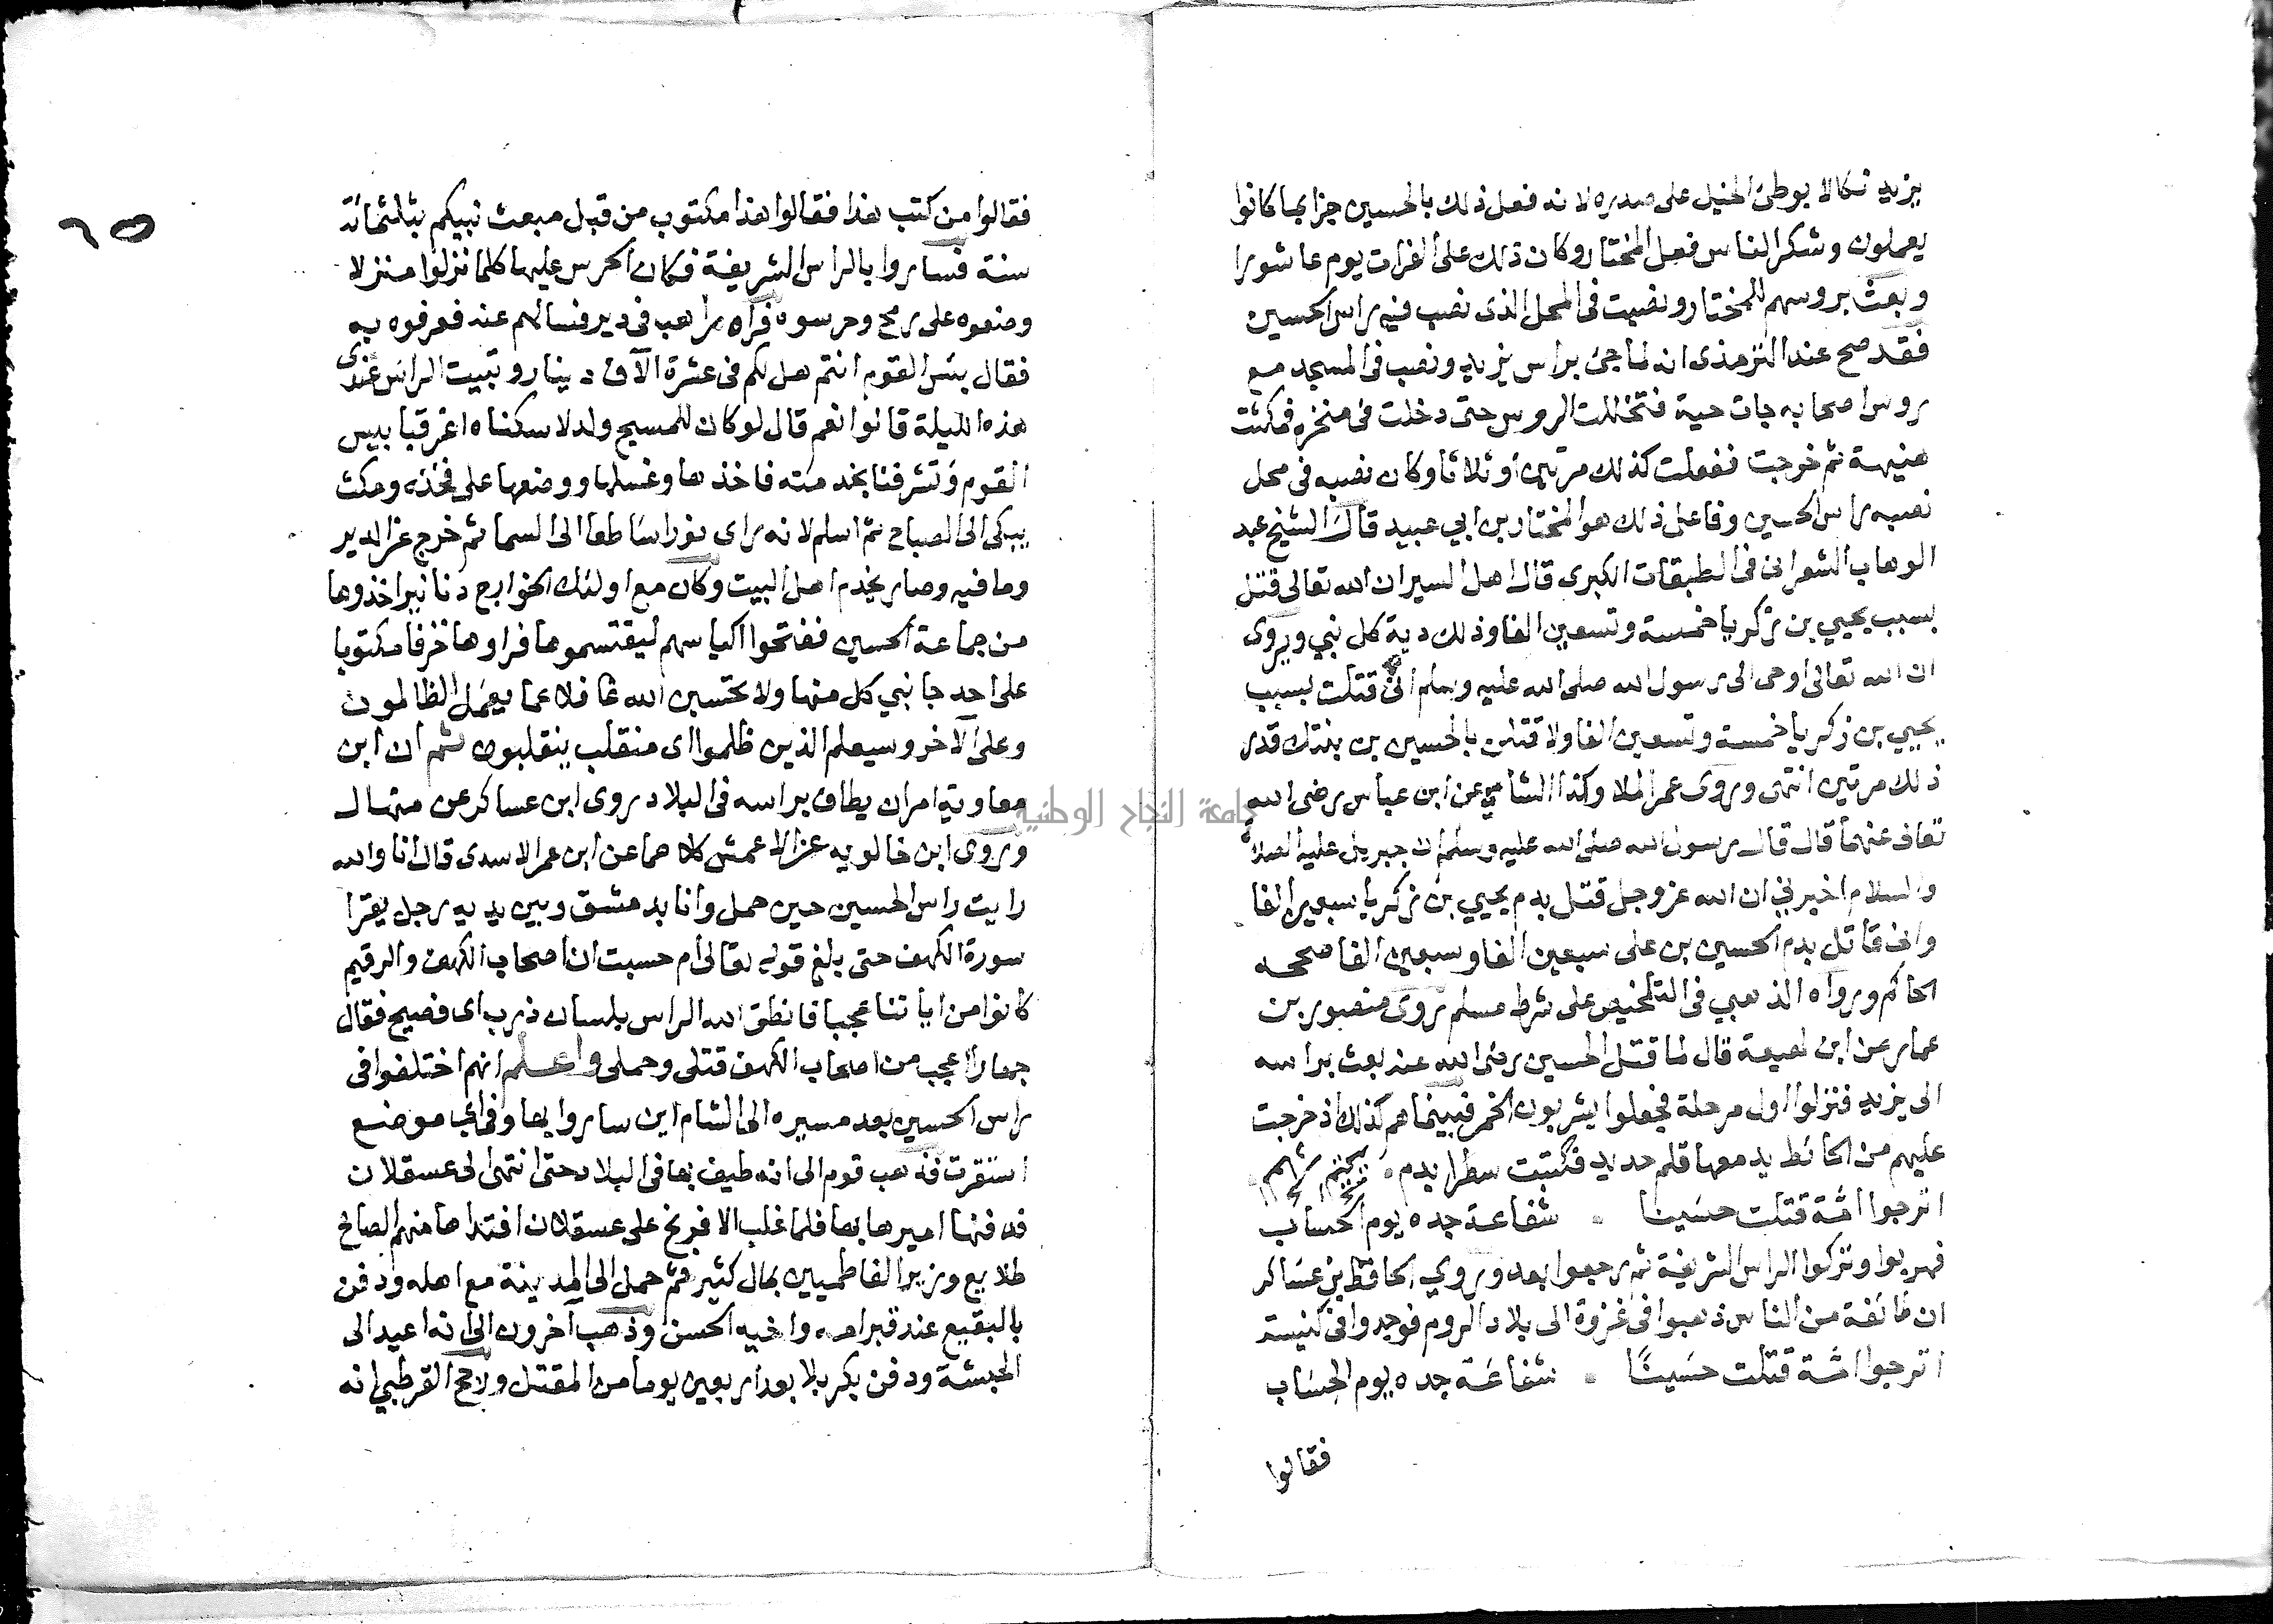 يزيد نكالا بوطئ الخيل على صدره لانه فعل ذلك بالحسين جزا بما كانوا
يعملون وشكر الناس فعل المختار وكان ذلك على الفرات يوم عاشورا
وبعث بروسهم للمختار ونصبت فى المحل الذى نصب فيه راس الحسين
فقد صح عند الترمذى انه لما جئ براس يزيد ونصب فى المسجد مع
روس اصحابه جات حية فتخللت الروس حتى دخلت فى منخره فمكثت
هنيهة ثم خرجت ففعلت كذلك مرتين او ثلاثا وكان نصبه فى محل
نصبه راس الحسين وفاعل ذلك هو المختار بن ابي عبيد قال الشيخ عبد
الوهاب الشعرانى فى الطبقات الكبرى قال اهل السير ان الله تعالى قتل
بسبب يحيي بن زكريا خمسة وتسعين الفا وذلك دية كل نبي ويروى
ان الله تعالى اوحى الى رسول الله صلى الله عليه وسلم انى قتلت بسبب
يحيي بن زكريا خمسة وتسعين الفا ولا قتلن بالحسين بن بنتك قدر
ذلك مرتين انتهى وروى عمر الملا وكذا الشامي عن ابن عباس رضى الله
تعالى عنهما قال قال رسول الله صلى الله عليه وسلم ان جبريل عليه الصلاة
والسلام اخبرنى ان الله عز وجل قتل بدم يحيي بن زكريا سبعين الفا
وانى قاتل بدم الحسين بن على سبعين الفا وسبعين الفا صححه
الحاكم ورواه الذهبي فى التلخيص على شرط مسلم روى منصور بن
عمار عن ابن لهيعة قال لما قتل الحسين رضى الله عنه بعث براسه
الى يزيد فنزلوا اول مرحلة فجعلوا يشربون الخمر فبينما هم كذلك اذ خرجت
عليهم من الحائط يد معها قلم حديد فكتبت سطرا بدم
اترجوا امّة قتلت حسَينا شفاعة جده يوم الحساب
فهربوا وتركوا الراس الشريفة ثم رجعوا بعد وروي الحافظ بن عسَاكر
ان طائفة من الناس ذهبوا فى غزوة الى بلاد الروم فوجدوا فى كنيسة
اترجوا امّة قتلت حسَينًا شفاعَة جده يوم الحسَاب
فقالوا
٦٥
فقالوا من كتب هذا فقالوا هذا مكتوب من قبل مبعث نبيكم بثلثمائة
سنة فساروا بالراس الشريفة فكان الحرس عليها كلما نزلوا منزلا
وضعوه على رمح وحرسوه فرآه راهب فى دير فسالهم عنه فعرفوه به
فقال بئس القوم انتم هل لكم فى عشرة الآف دينار وتبيت الراس عندى
هذه الليلة قالوا نعم قال لو كان للمسيح ولد لاسكناه احداقنا بيس
القوم وتشرفنا بخدمته فاخذها وغسلها ووضعها على فخذه ومكث
يبكى الى الصباح ثم اسلم لانه راى نورا ساطعا الى السما ثم خرج عن الدير
وما فيه وصار يخدم اهل البيت وكان مع اولئك الخوارج دنانير اخذوها
من جماعة الحسين ففتحوا اكياسهم ليقتسموها فراوها خزفا مكتوبا
على احد جانبي كل منها ولا تحتسبن الله غافلا عما يعمل الظالمون
وعلى الآخر وسيعلم الذين ظلموا اى منقلب ينقلبون ثم ان ابن
معاوية امر ان يطاف براسه فى البلاد روى ابن عساكر عن منهال
وروى ابن خالويه عن الاعمش كلاهما عن ابن عمر الاسدى قال انا والله
رايت راس الحسين حين حمل وانا بدمشق وبين يديه رجل يقرا
سورة الكهف حتى بلغ قوله تعالى ام حسبت ان اصحاب الكهف والرقيم
كانوا من اياتنا عجبا فانطق الله الراس بلسان ذرب اى فصيح فقال
جهارا اعجب من اصحاب الكهف قتلى وحملى واعلم انهم اختلفوا فى
راس الحسين بعد مسيره الى الشام اين ساروا بها وفى اى موضع
استقرت فذهب قوم الى انه طيف بها فى البلاد حتى انتهى الى عسقلان
فدفنها اميرها بها فلما غلب الافرنج على عسقلان افتداها منهم الصالح
طلايع وزير الفاطميين بمال كثير ثم حمل الى المدينة مع اهله ودفن
بالبقيع عند قبر امه واخيه الحسن وذهب آخرون الى انه اعيد الى
الجثة ودفن بكربلا بعد اربعين يوما من المقتل ورجح القرطبي انه
جامعة النجاح الوطنية